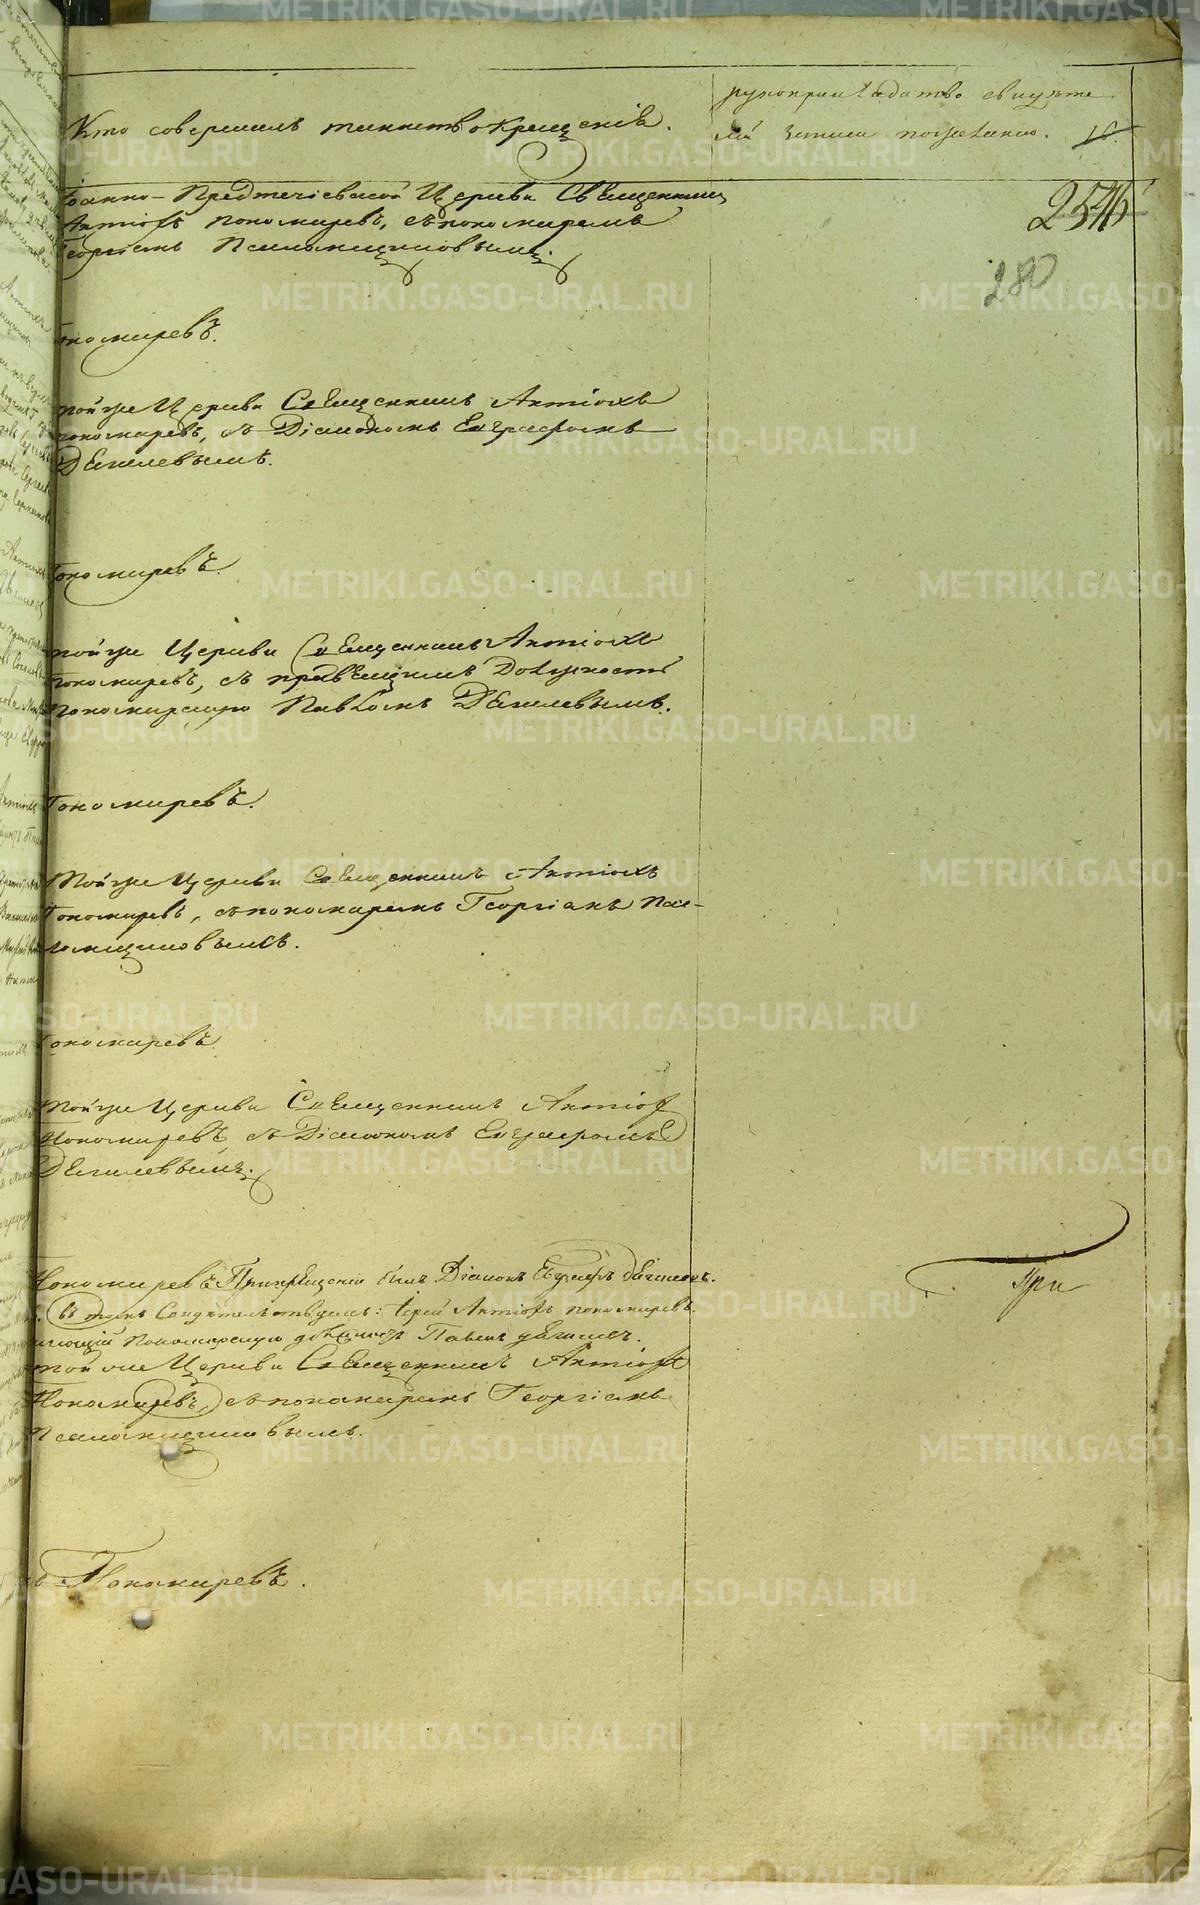 Кто совершалъ таинство крещенія.
рукоприкладство свидѣте
лей записи по желанію. 16.
254
280
Іоанно-Предтечіевской Церкви Священникъ
Антіохъ Пономаревъ, съ пономаремъ
Георгіемъ Псаломщиковымъ.
Пономаревъ.
той же Церкви Священникъ Антіохъ
Пономаревъ, съ Діакономъ Евграфомъ
Дѣгилевымъ.
Пономаревъ.
той же Церкви Священникъ Антіохъ
Пономаревъ, съ правящимъ Должность
Пономарскую Павломъ Дѣгилевымъ.
Пономаревъ.
Той же Церкви Священникъ Антіохъ
Пономаревъ, съ пономаремъ Георгіемъ Пса-
ломщиковымъ.
Пономаревъ.
Той же Церкви Священникъ Антіохъ
Пономаревъ съ Діакономъ Евграфомъ
Дѣгилевымъ.
Пономаревъ При крещеніи былъ Діаконъ Евграфъ Дѣгилевъ.
въ томъ Свидѣтельствуемъ: Іерей Антіохъ Пономаревъ.
Пономарскую должность Павелъ Дѣгилевъ.
той же Церкви Священникъ Антіохъ
Пономаревъ, съ пономаремъ Георгіемъ
Псаломщиковымъ.
При
Пономаревъ.
METRIKI.GASO-URAL.RU